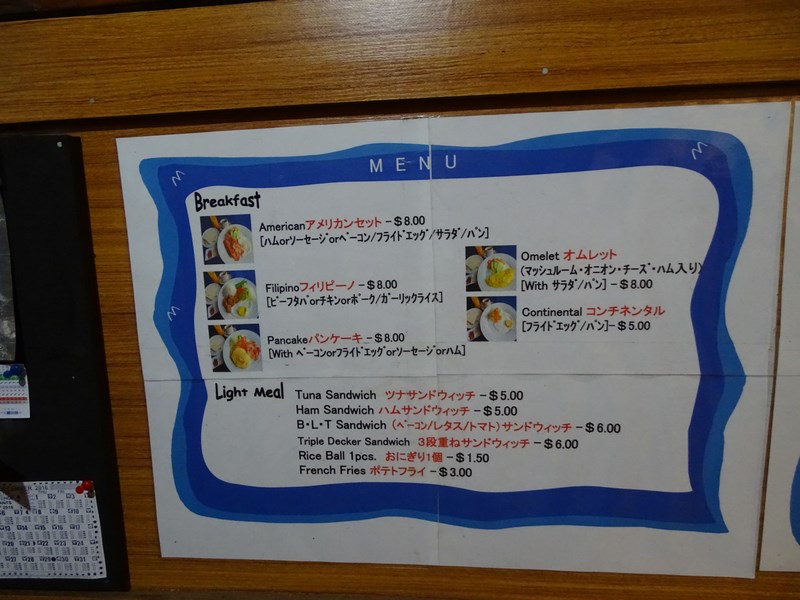 MENU
Breakfast
Americanアメリカンセット -＄8.00
[ハムorソーセージorベーコン/フライドエッグ/サラダ/パン]
Filipinoフィリピーノ -＄8.00
[ビーフタパorチキンorポーク/ガーリックライス]
Pancakeパンケーキ -＄8.00
[With ベーコンorフライドエッグorソーセージorハム]
Omelet オムレット
(マッシュルーム・オニオン・チーズ・ハム入り)
[With サラダ/パン] -＄8.00
Continental コンチネンタル
[フライドエッグ/パン]-＄5.00
Light Meal
Tuna Sandwich ツナサンドウィッチ -＄5.00
Ham Sandwich ハムサンドウィッチ -＄5.00
B・L・T Sandwich (ベーコン/レタス/トマト)サンドウィッチ -＄6.00
Triple Decker Sandwich 3段重ねサンドウィッチ -＄6.00
Rice Ball 1pcs. おにぎり1個 -＄1.50
French Fries ポテトフライ -＄3.00